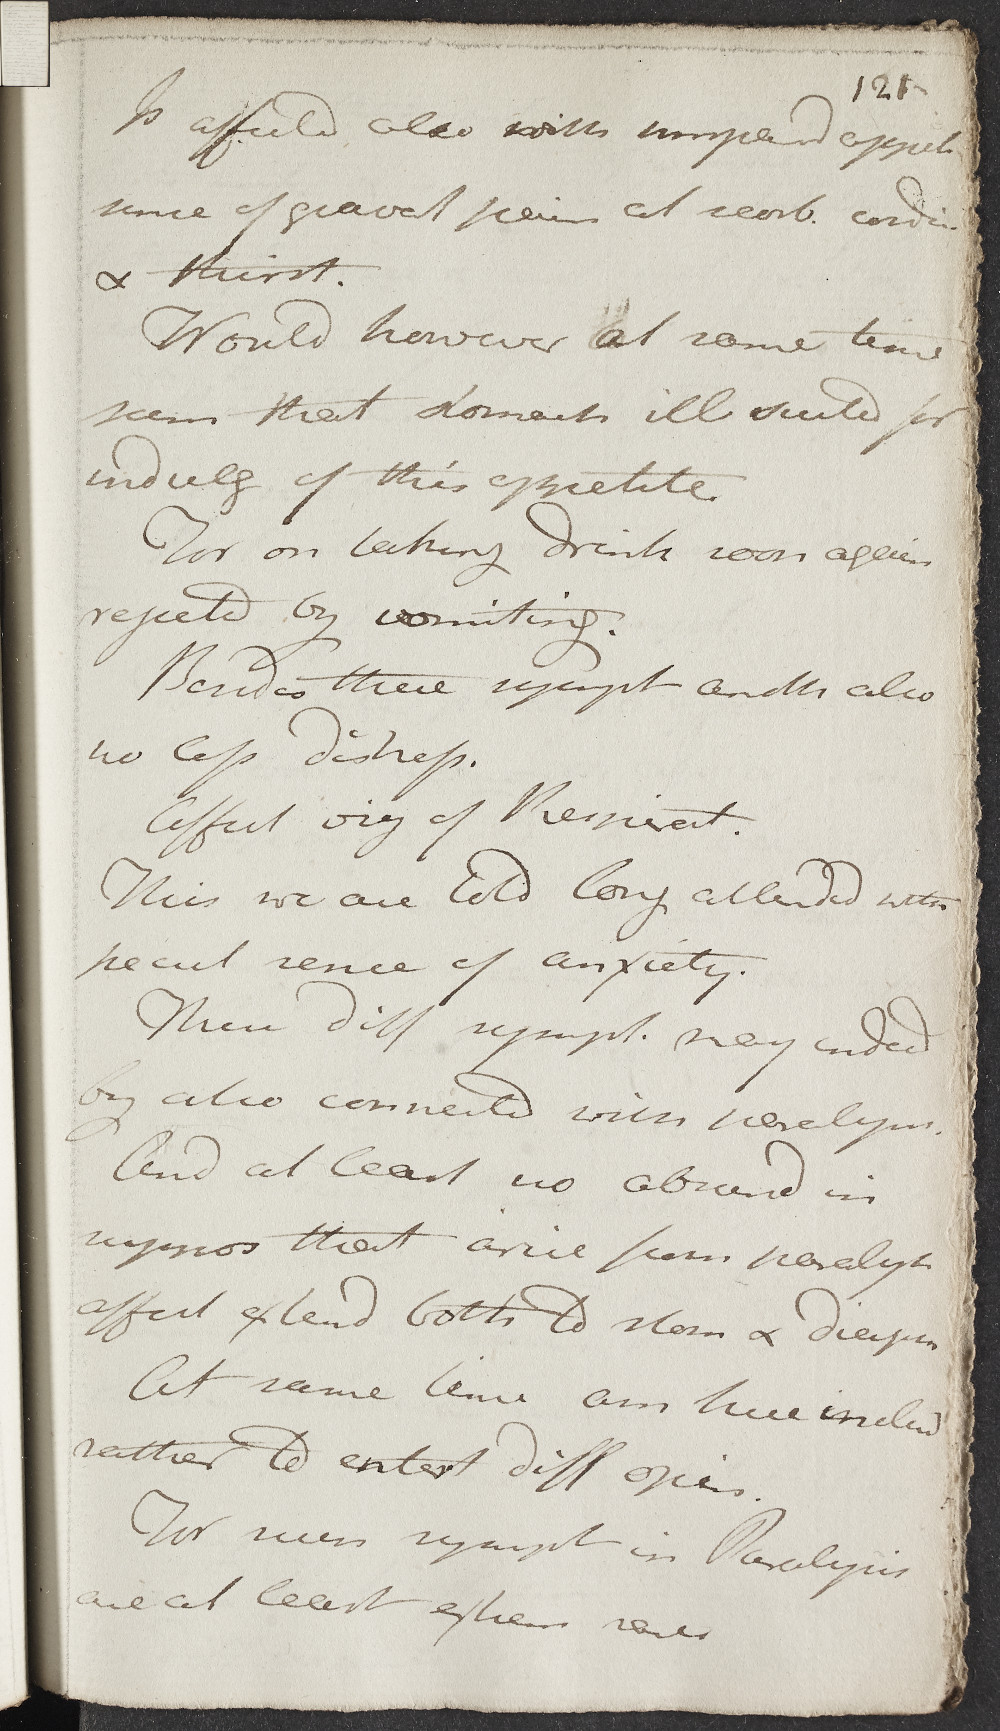 121
Is affected also with uncommd appet
sense of gnawal pain at scorb. cordis
& thirst.
Would however at same time
seem that stomach ill suited for
indulg of this appetite.
For on taking drink soon again
rejected by vomiting.
Besides these sympt another also
no less distress.
Affect viz of Respirat.
This we are told long attended with
pecul sense of anxiety.
These diff sympt. may indeed
by also connected with paralysis.
And at least no absurd in
suppos that arise from paralyt
affect extend both to stom & diaphm
At same time am here inclind
rather to entert diff opin.
For such sympt in Paralysis
are at least extrem rare